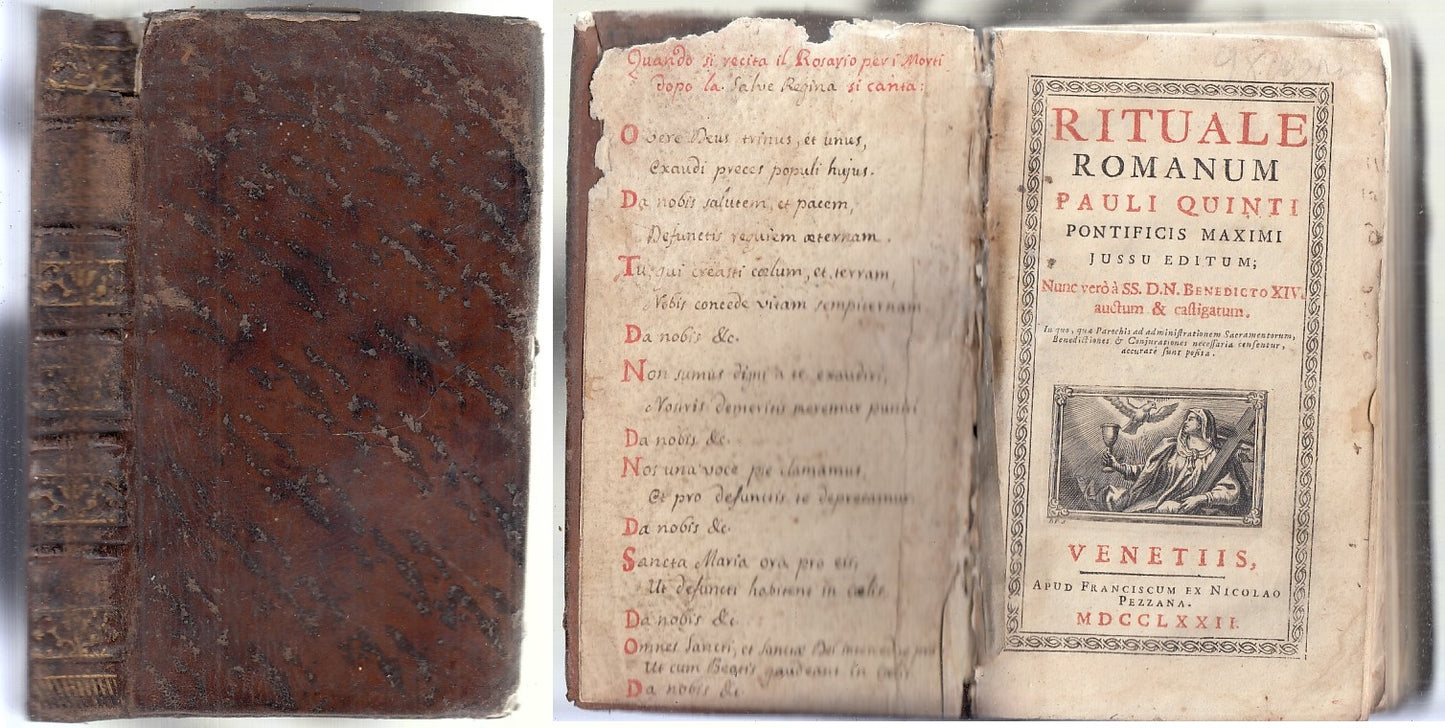 Quando si recita il Rosario per i Morti
dopo la Salve Regina si canta:
O vere Deus trinus, et unus,
Exaudi preces populi hujus.
Da nobis salutem, et pacem,
Defunctis requiem æternam.
Tu, qui creasti cœlum, et terram,
Nobis concede vitam sempiternam
Da nobis &c.
Non sumus digni a te exaudiri,
Nostris demeritis meremur puniri
Da nobis &c.
Nos una voce pie clamamus,
Et pro defunctis te deprecamur
Da nobis &c.
Sancta Maria ora pro eis,
Ut defuncti habitent in cœlis
Da nobis &c
Omnes Sancti, et Sanctæ Dei
Ut cum Beatis gaudeant in cœlis
Da nobis &c
RITUALE
ROMANUM
PAULI QUINTI
PONTIFICIS MAXIMI
JUSSU EDITUM;
Nunc verò à SS. D.N. BENEDICTO XIV.
auctum & castigatum.
In quo, quæ Parochis ad administrationem Sacramentorum,
Benedictiones & Conjurationes necessaria censentur,
accuratè sunt posita.
VENETIIS,
APUD FRANCISCUM EX NICOLAO
PEZZANA.
MDCCLXXII.